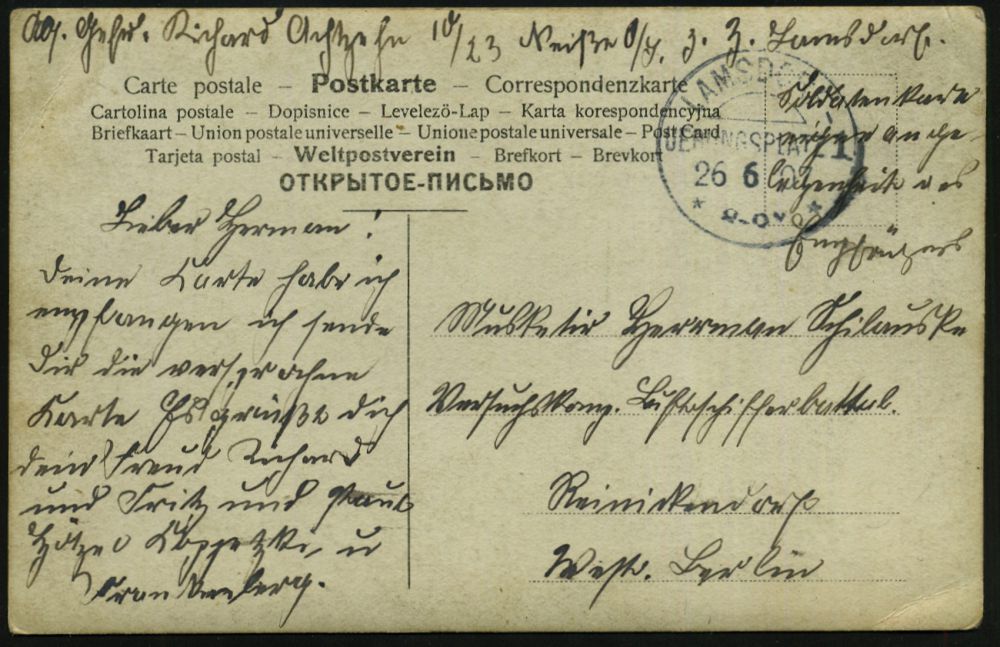 Abs. Gefr. Richard Achtzehn 10/23 Neiße O/S. z. Z. Lamsdorf.
Carte postale – Postkarte – Correspondenzkarte
Cartolina postale – Dopisnice – Levelezö-Lap – Karta korespondencyjna
Briefkaart – Union postale universelle – Unione postale universale – Post Card
Tarjeta postal – Weltpostverein – Brefkort – Brevkort
ОТКРЫТОЕ-ПИСЬМО
LAMSDORF
UEBUNGSPLATZ 1
26 6
* 8-9V *
Soldatenkarte
eigene Ange-
legenheit des
Empfängers
Lieber Herman!
Deine Karte habe ich
empfangen ich sende
dir die versprochne
Karte Es grüßt dich
dein Freud Richard
und Fritz und Paul
u
Musketir Herrman Schilauske
Versuchskomp. Luftschifferbattal.
Reinickendorf
West. Berlin